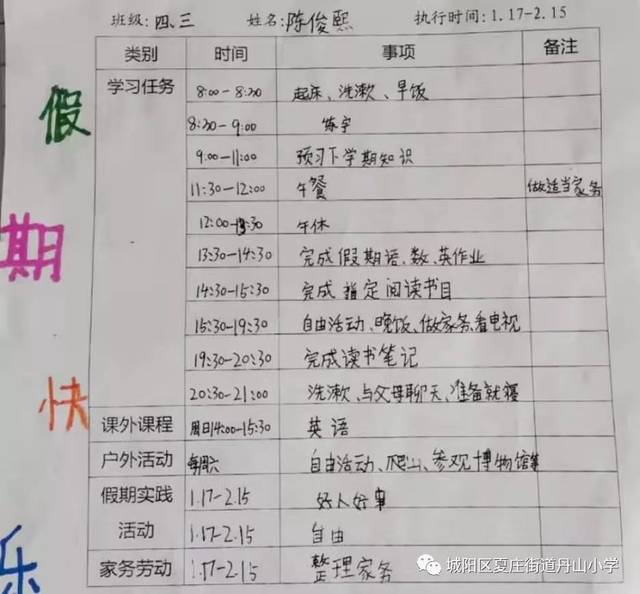 班级:四.三 姓名:陈俊熙 执行时间:1.17-2.15
类别 时间 事项 备注
学习任务 8:00-8:30 起床、洗漱、早饭
8:30-9:00 练字
9:00-11:00 预习下学期知识
11:30-12:00 午餐 做适当家务
12:00-13:30 午休
13:30-14:30 完成假期语、数、英作业
14:30-15:30 完成指定阅读书目
15:30-19:30 自由活动、晚饭、做家务、看电视
19:30-20:30 完成读书笔记
20:30-21:00 洗漱、与父母聊天、准备就寝
课外课程 周日14:00-15:30 英语
户外活动 每周六 自由活动、爬山、参观博物馆等
假期实践 1.17-2.15 好人好事
活动 1.17-2.15 自由
家务劳动 1.17-2.15 整理家务
假
期
快
乐
城阳区夏庄街道丹山小学